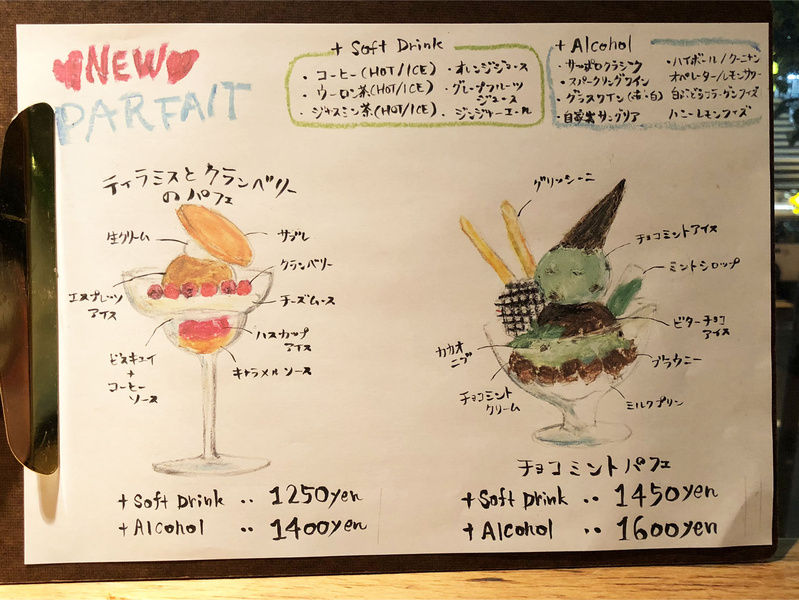 NEW
PARFAIT
+ Soft Drink
・コーヒー(HOT/ICE)
・ウーロン茶(HOT/ICE)
・ジャスミン茶(HOT/ICE)
・オレンジジュース
・グレープフルーツ
ジュース
・ジンジャーエール
+ Alcohol
・サッポロクラシック
・スパークリングワイン
・グラスワイン(赤・白)
・自家製サングリア
・ハイボール/クーニャン
オペレーター/レモンサワー
ハニーレモンフィズ
ティラミスとクランベリー
のパフェ
生クリーム
サブレ
クランベリー
エスプレッソ
アイス
チーズムース
ハスカップ
アイス
ビスキュイ
+
コーヒー
ソース
キャラメルソース
+ Soft Drink ‥ 1250yen
+ Alcohol ‥ 1400yen
グリッシーニ
チョコミントアイス
ミントシロップ
ビターチョコ
アイス
カカオ
ニブ
ブラウニー
チョコミント
クリーム
ミルクプリン
チョコミントパフェ
+ Soft Drink ‥ 1450yen
+ Alcohol ‥ 1600yen